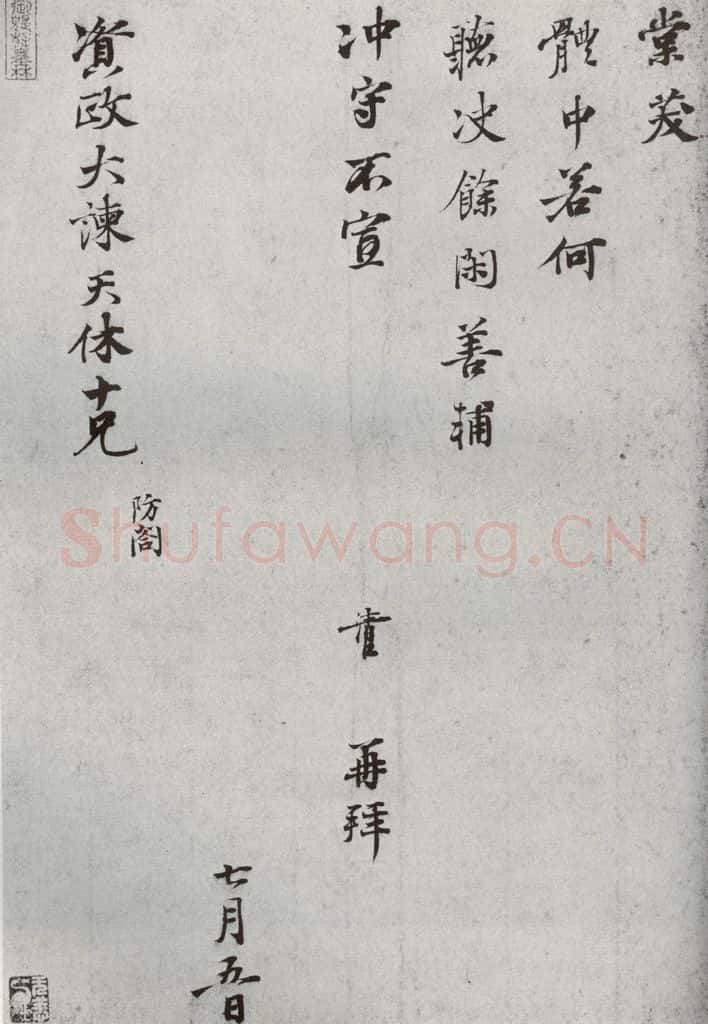 棠茇
體中若何
聽决餘閑善輔
冲守不宣
再拜
七月五日
資政大諫天休十兄
防閤
Shufawang.CN